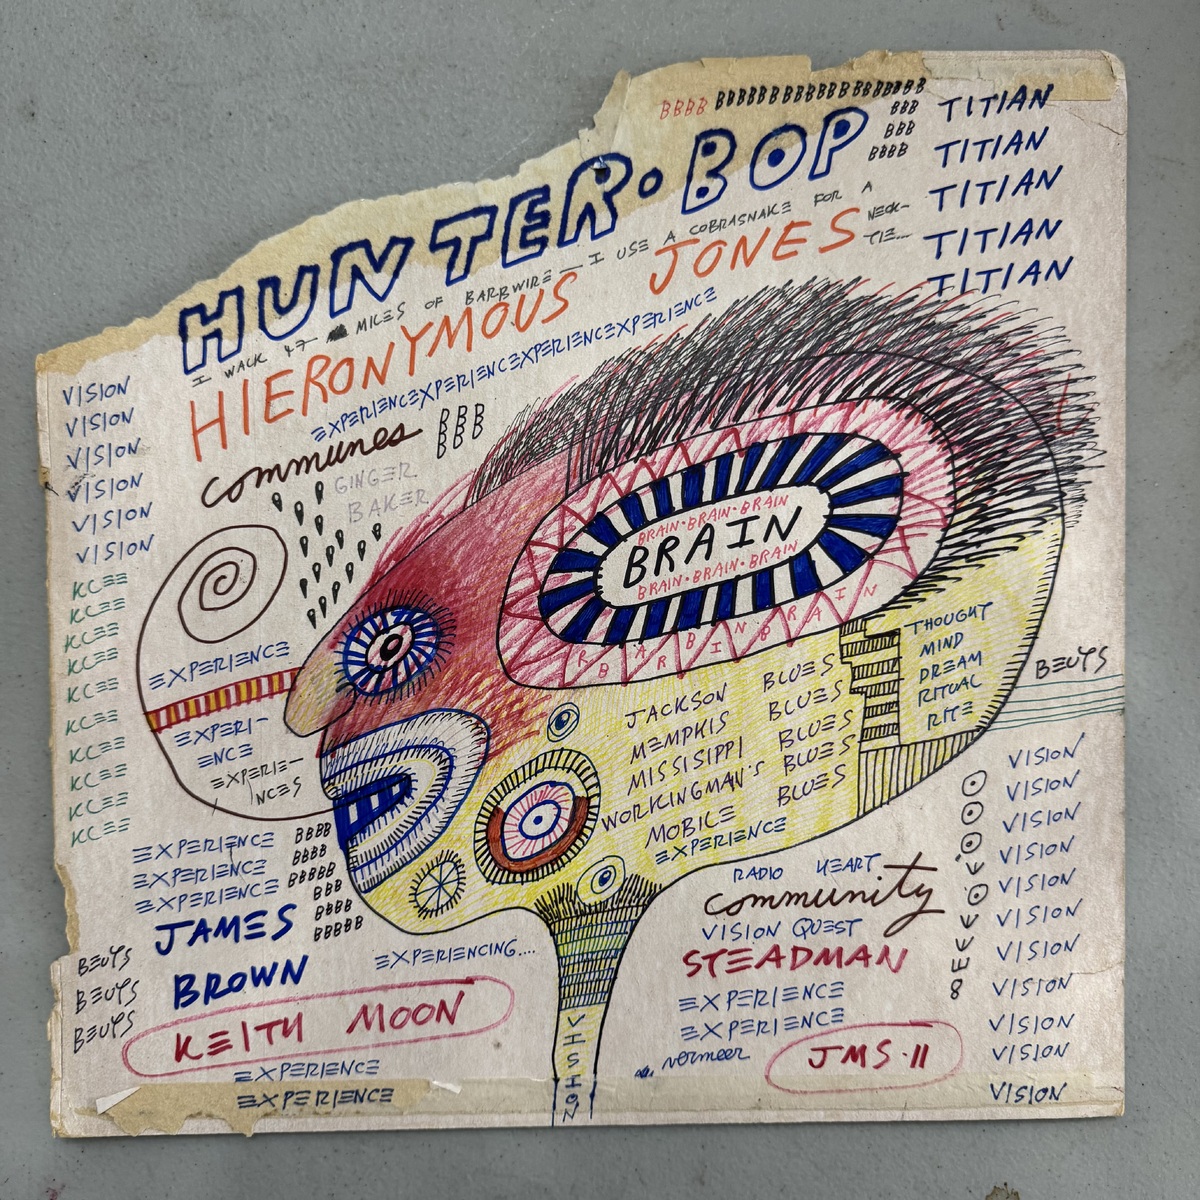 BBBB BBBBBBBBBBBBBBBB
BBB
BBB
BBBB
HUNTER·BOP
TITIAN
TITIAN
TITIAN
TITIAN
TITIAN
I WALK 47 MILES OF BARBWIRE — I USE A COBRASNAKE FOR A
NECK-
TIE...
HIERONYMOUS JONES
EXPERIENCEXPERIENCEXPERIENCEXPERIENCE
communes
BBB
BBB
BBB
GINGER
BAKER
VISION
VISION
VISION
VISION
VISION
VISION
KLEE
KLEE
KLEE
KLEE
KLEE
KLEE
KLEE
KLEE
KLEE
KLEE
EXPERIENCE
EXPERI-
ENCE
EXPERIE-
NCES
BRAIN·BRAIN·BRAIN
BRAIN
BRAIN·BRAIN·BRAIN
R B A R B I N B R A I N
THOUGHT
MIND
DREAM
RITUAL
RITE
BEUYS
JACKSON BLUES
MEMPHIS BLUES
MISSISIPPI BLUES
WORKINGMAN'S BLUES
MOBILE BLUES
EXPERIENCE
EXPERIENCE
EXPERIENCE
EXPERIENCE
BBBB
BBBB
BBBBB
BBB
BBBB
BBBBB
JAMES
BROWN
BEUYS
BEUYS
BEUYS
EXPERIENCING....
KEITH MOON
EXPERIENCE
EXPERIENCE
VISION
RADIO HEART
community
VISION QUEST
STEADMAN
EXPERIENCE
EXPERIENCE
vermeer
JMS·11
VISION
VISION
VISION
VISION
VISION
VISION
VISION
VISION
VISION
VISION
VISION